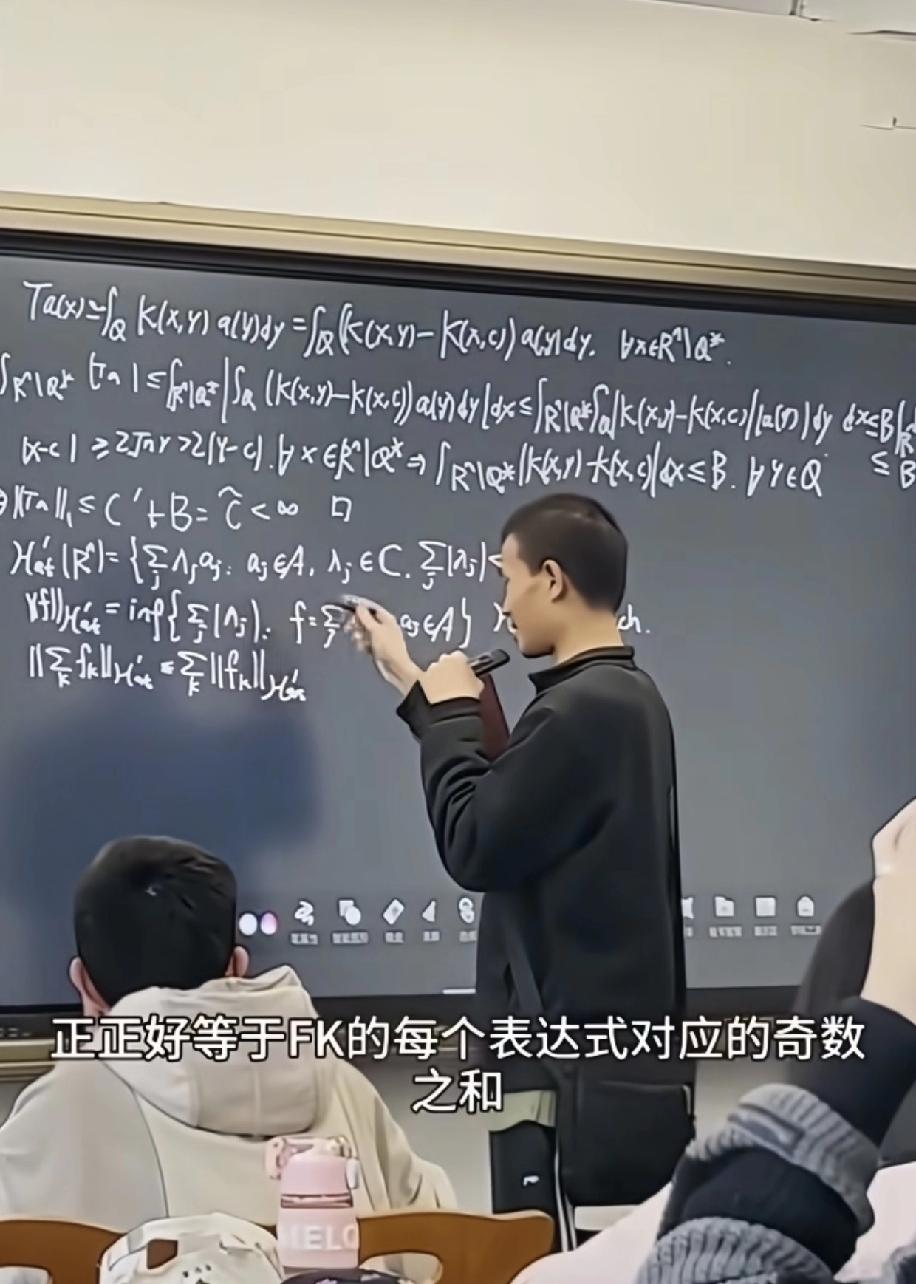 Ta(x)=∫_Q K(x,y) a(y)dy =∫_Q (K(x,y)−K(x,c)) a(y)dy. ∀x∈R^n\Q*.
∫_{R^n\Q*} |Ta| ≤ ∫_{R^n\Q*} |∫_Q (K(x,y)−K(x,c)) a(y)dy| dx ≤ ∫_{R^n\Q*} ∫_Q |K(x,y)−K(x,c)| |a(y)| dy dx ≤ B
|x−c| ≥ 2√n r > 2|y−c|. ∀x∈R^n\Q* ⇒ ∫_{R^n\Q*} |K(x,y)−K(x,c)| dx ≤ B. ∀y∈Q ≤ B
||Ta||₁ ≤ C′+B = C̃ < ∞ □
H¹_at(R^n)={∑_j λ_j a_j: a_j∈A, λ_j∈C, ∑_j |λ_j|<
||f||_{H¹_at} = inf{∑_j |λ_j|: f=∑_j a_j∈A} ch.
||∑_k f_k||_{H¹_at} ≤ ∑_k ||f_k||_{H¹_at}
正正好等于FK的每个表达式对应的奇数
之和
MELO